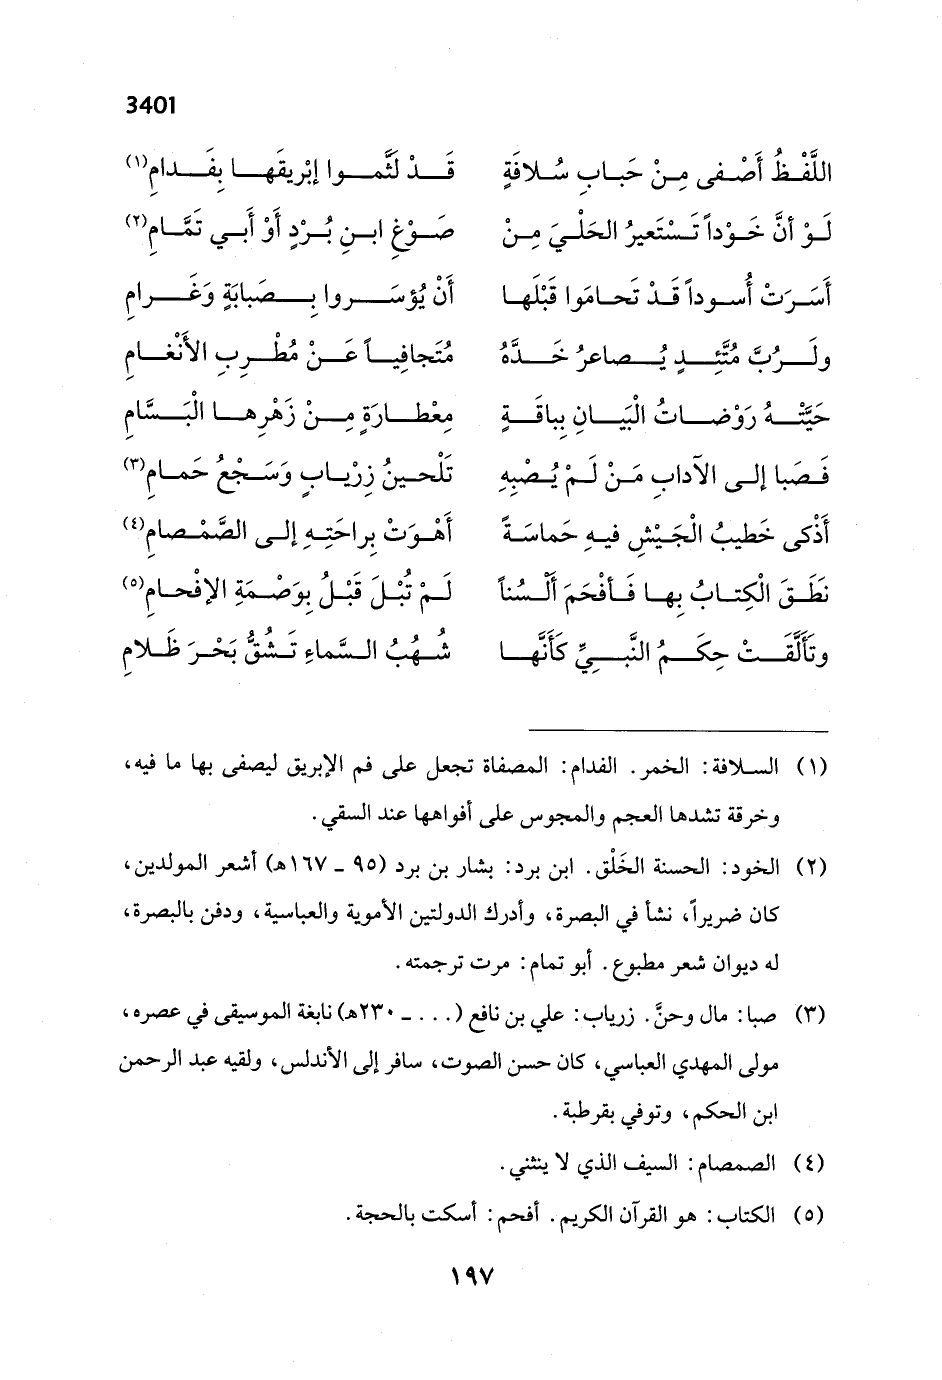 3401
اللَّفْظُ أَصْفى مِنْ حَبابِ سُلافَةٍ قَدْ لَثَّموا إبْريقَها بِفَدامِ(١)
لَوْ أنَّ خَوْداً تَسْتَعيرُ الحَلْيَ مِنْ صَوْغِ ابنِ بُرْدٍ أوْ أَبي تَمَّامِ(٢)
أَسَرَتْ أُسوداً قَدْ تَحامَوا قَبْلَها أَنْ يُؤسَروا بِصَبابَةٍ وَغَرامِ
ولَرُبَّ مُتَّئِدٍ يُصاعرُ خَدَّهُ مُتَجافياً عَنْ مُطْرِبِ الأَنْغامِ
حَيَّتْهُ رَوْضاتُ الْبَيانِ بِباقَةٍ مِعْطارَةٍ مِنْ زَهْرِها الْبَسَّامِ
فَصَبا إلى الآدابِ مَنْ لَمْ يُصْبِهِ تَلْحينُ زِرْيابٍ وَسَجْعُ حَمامِ(٣)
أَذْكى خَطيبُ الْجَيْشِ فيهِ حَماسَةً أَهْوَتْ بِراحَتِهِ إلى الصَّمْصامِ(٤)
نَطَقَ الْكِتابُ بِها فَأفْحَمَ أَلْسُناً لَمْ تُبْلَ قَبْلُ بِوَصْمَةِ الإفْحامِ(٥)
وتَأَلَّقَتْ حِكَمُ النَّبِيِّ كَأَنَّها شُهُبُ السَّماءِ تَشُقُّ بَحْرَ ظَلامِ
(١) السلافة: الخمر. الفدام: المصفاة تجعل على فم الإبريق ليصفى بها ما فيه،
وخرقة تشدها العجم والمجوس على أفواهها عند السقي.
(٢) الخود: الحسنة الخَلْق. ابن برد: بشار بن برد (٩٥ ـ ١٦٧هـ) أشعر المولدين،
كان ضريراً، نشأ في البصرة، وأدرك الدولتين الأموية والعباسية، ودفن بالبصرة،
له ديوان شعر مطبوع. أبو تمام: مرت ترجمته.
(٣) صبا: مال وحنَّ. زرياب: علي بن نافع (. . . ـ ٢٣٠هـ) نابغة الموسيقى في عصره،
مولى المهدي العباسي، كان حسن الصوت، سافر إلى الأندلس، ولقيه عبد الرحمن
ابن الحكم، وتوفي بقرطبة.
(٤) الصمصام: السيف الذي لا ينثني.
(٥) الكتاب: هو القرآن الكريم. أفحم: أسكت بالحجة.
١٩٧